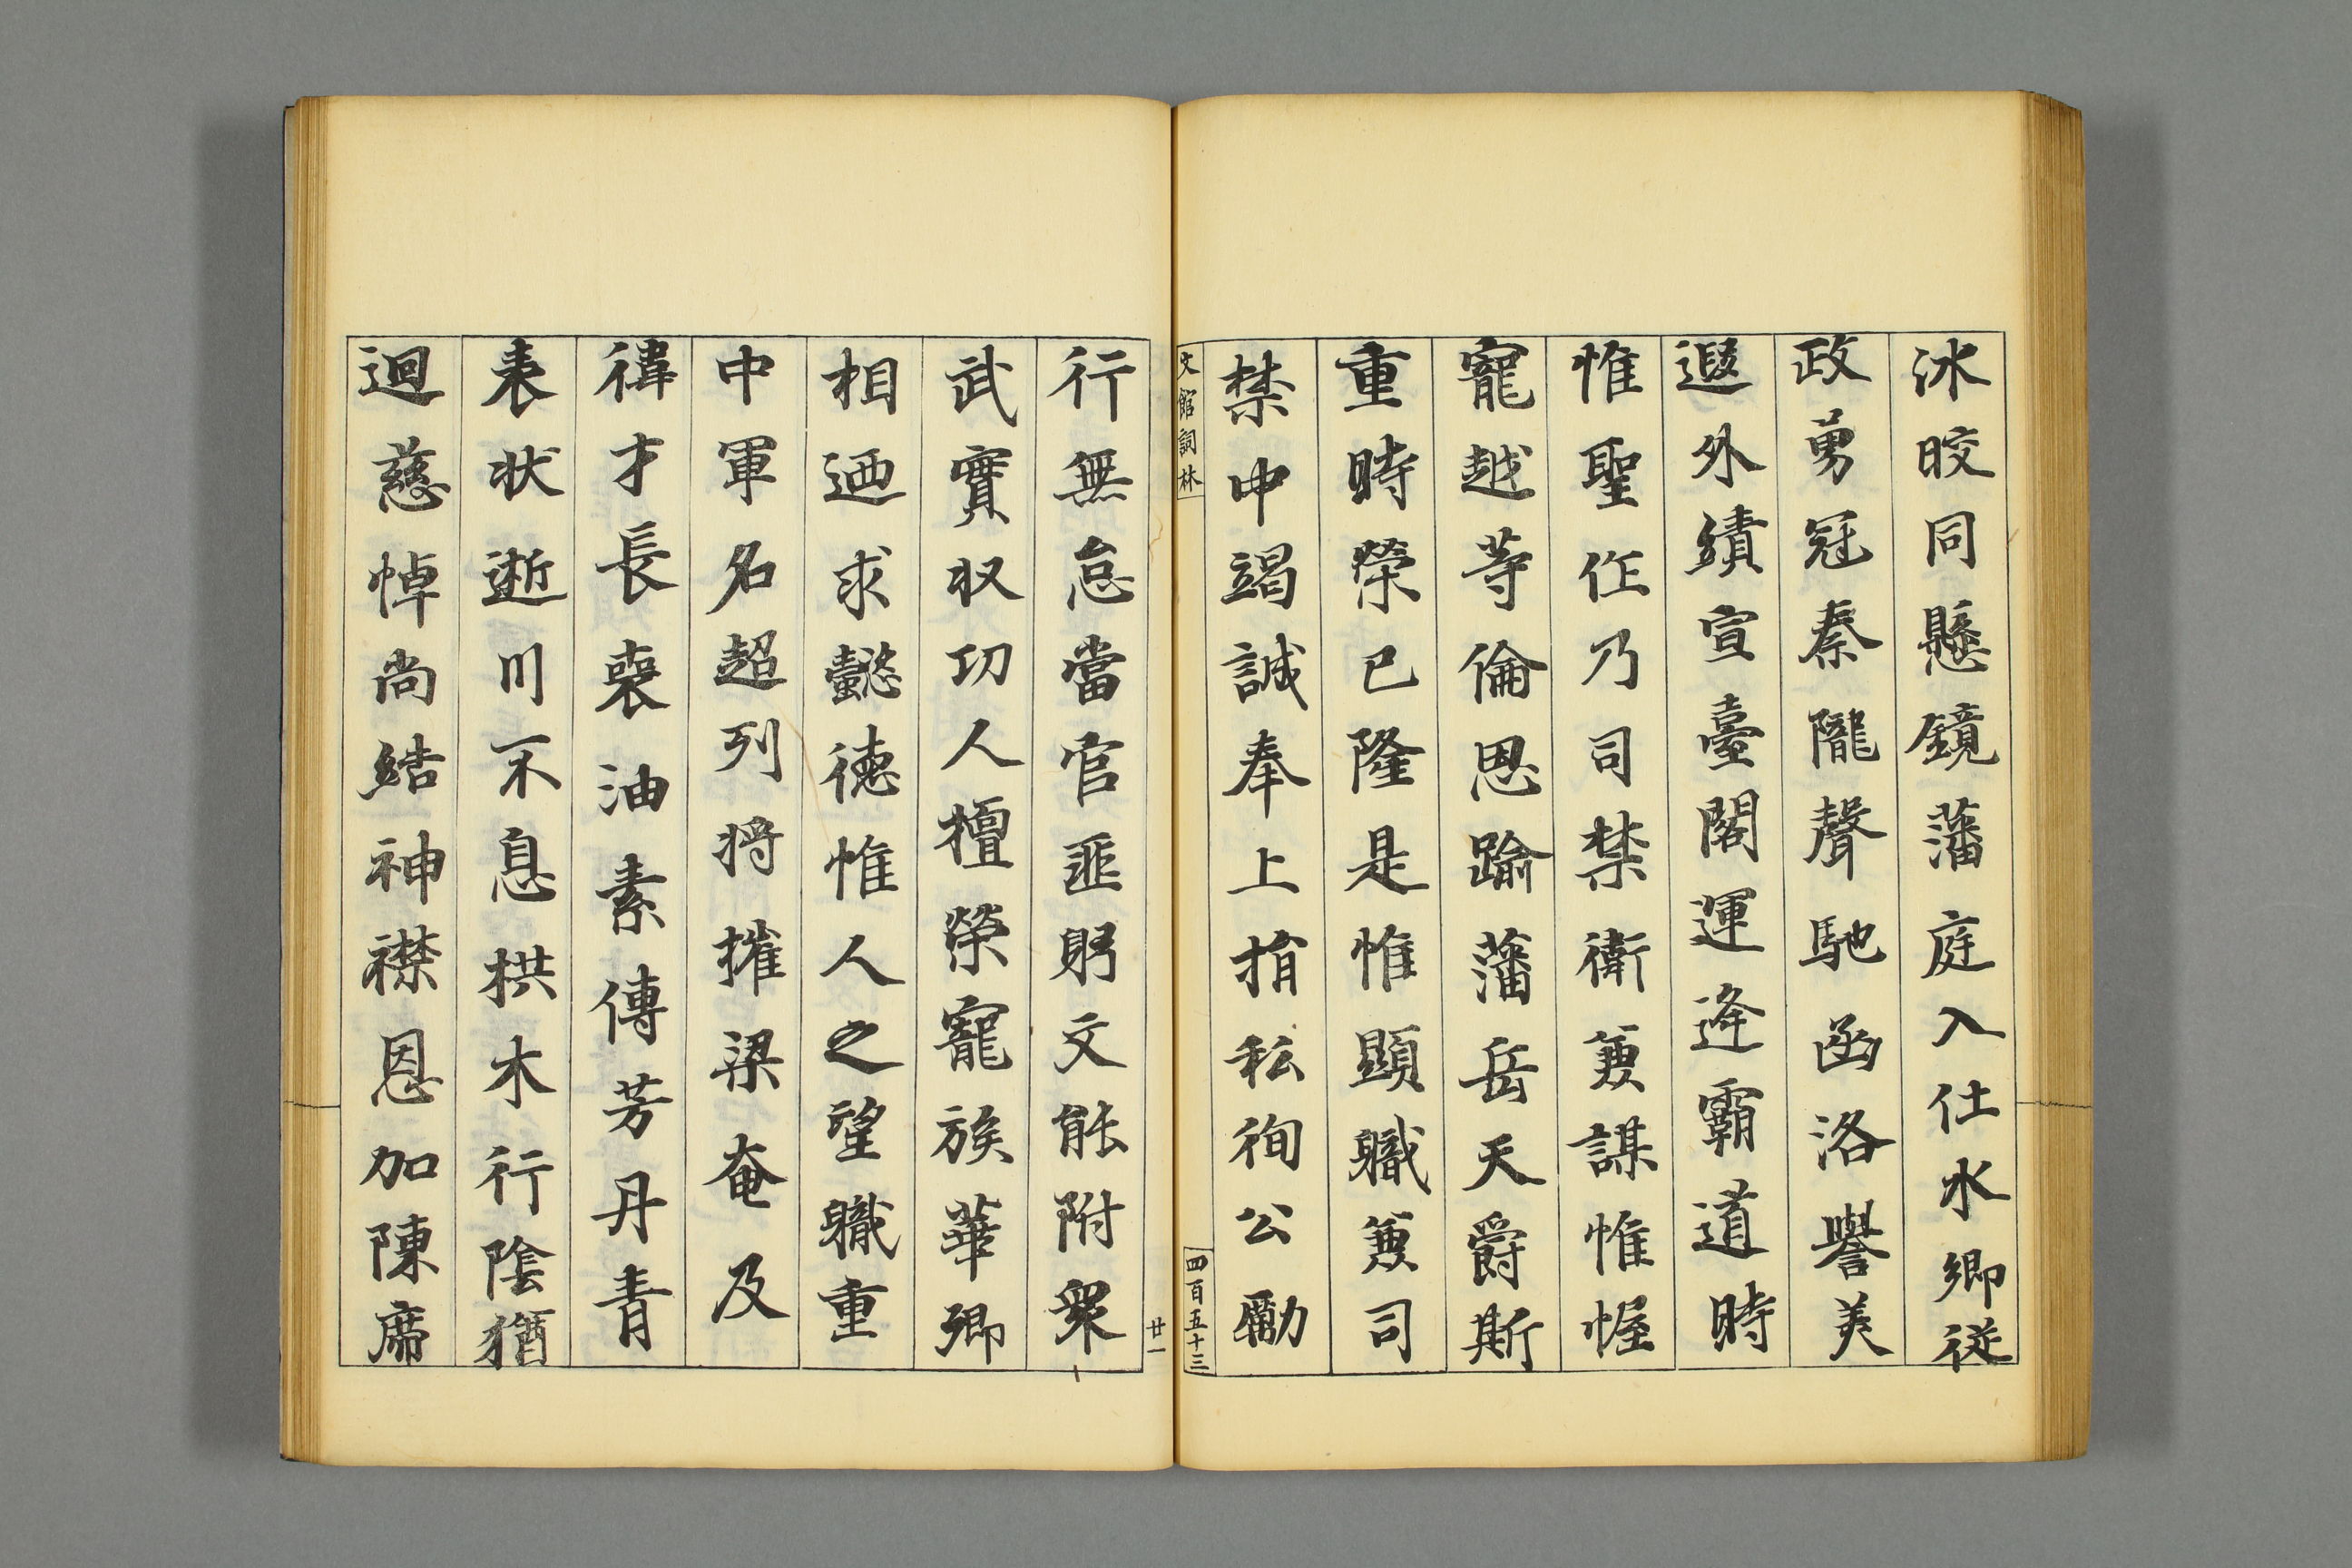 冰皎同懸鏡藩庭入仕水鄉従
政勇冠秦隴聲馳函洛譽美
遐外績宣臺閣運逢霸道時
惟聖作乃司禁衛蕑謀惟幄
寵越等倫恩踰藩岳天爵斯
重時榮已隆是惟顯職蕑司
禁中竭誠奉上捐私徇公勵
文館詞林
四百五十三
廿一
行無怠當官匪躬文能附衆
武實収功人擅榮寵族華卿
相迺求懿徳惟人之望職重
中軍名超列将摧梁奄及
禕才長裦油素傳芳丹青
表状逝川不息拱木行陰猶
迴慈悼尚結神襟恩加陳席